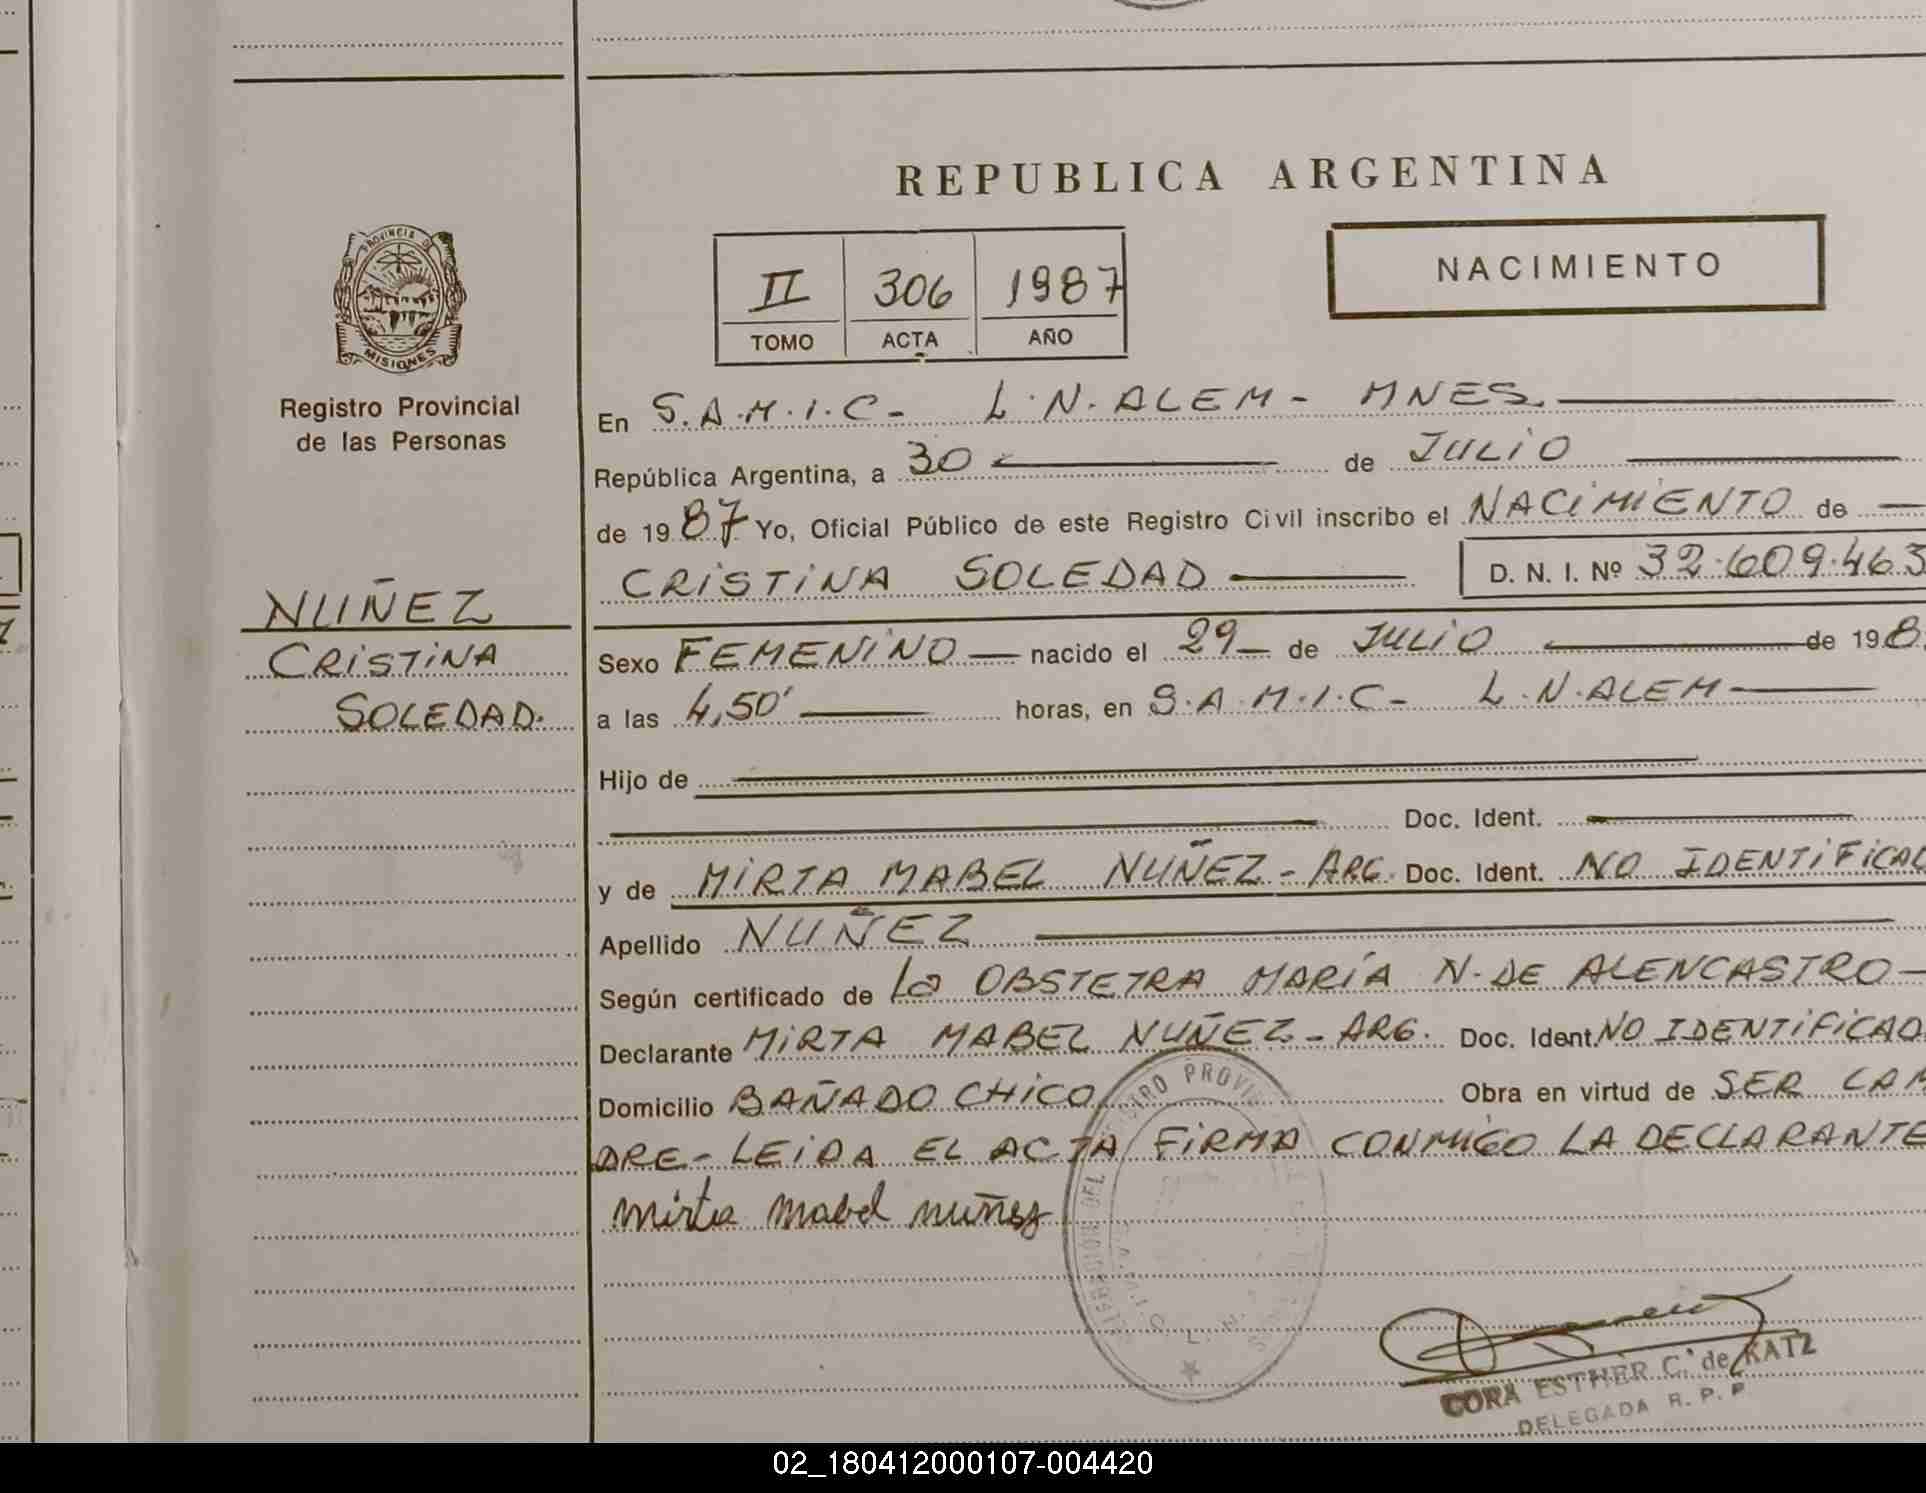 REPUBLICA ARGENTINA
PROVINCIA D
MISIONES
Registro Provincial
de las Personas
NUÑEZ
CRISTINA
SOLEDAD.
II 306 1987
TOMO ACTA AÑO
NACIMIENTO
En S.A.M.I.C- L.N.ALEM- MNES.
República Argentina, a 30 de JULIO
de 1987 Yo, Oficial Público de este Registro Civil inscribo el NACIMIENTO de
CRISTINA SOLEDAD D. N. I. Nº 32.609.463
Sexo FEMENINO nacido el 29 de JULIO de 198
a las 4,50' horas, en S.A.M.I.C- L.N.ALEM
Hijo de
Doc. Ident.
y de MIRTA MABEL NUÑEZ - ARG. Doc. Ident. NO IDENTIFICAD
Apellido NUÑEZ
Según certificado de La OBSTETRA MARÍA N. DE ALENCASTRO
Declarante MIRTA MABEL NUÑEZ - ARG. Doc. Ident. NO IDENTIFICAD
Domicilio BAÑADO CHICO Obra en virtud de SER LA M
DRE - LEIDA EL ACTA FIRMA CONMIGO LA DECLARANTE
mirta mabel nuñez
CORA ESTHER C. de KATZ
DELEGADA R. P. P
02_180412000107-004420